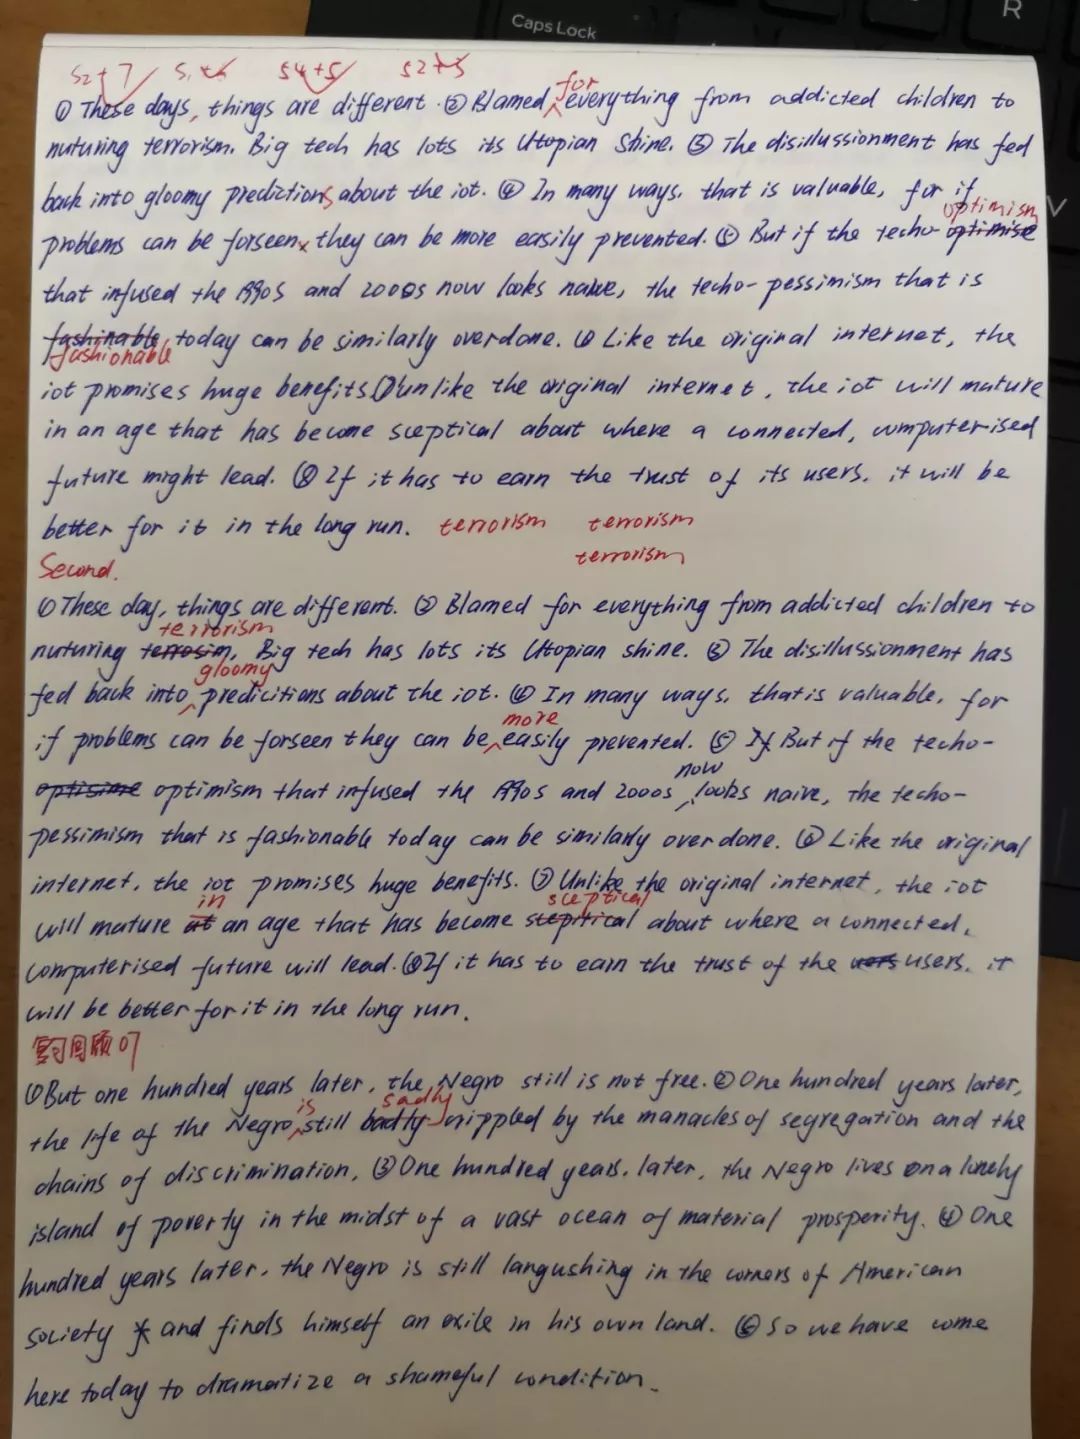 Caps Lock
R
V
52+7 5 54+5 52+5
for
① These days, things are different. ② Blamed everything from addicted children to
nuturing terrorism. Big tech has lots its Utopian Shine. ③ The disillussionment has fed
back into gloomy predictions about the iot. ④ In many ways, that is valuable, for if
optimism
problems can be forseen, they can be more easily prevented. ⑤ But if the techo-optimise
that infused the 1990s and 2000s now looks naive, the techo-pessimism that is
fashinable today can be similarly overdone. ⑥ Like the original internet, the
fashionable
iot promises huge benefits. ⑦ unlike the original internet, the iot will mature
in an age that has become sceptical about where a connected, computerised
future might lead. ⑧ If it has to earn the trust of its users, it will be
better for it in the long run. terrorism terrorism
terrorism
Second.
① These day, things are different. ② Blamed for everything from addicted children to
terrorism
nuturing terrosim, Big tech has lots its Utopian shine. ③ The disillussionment has
gloomy
fed back into predicitions about the iot. ④ In many ways, that is valuable, for
more
if problems can be forseen they can be easily prevented. ⑤ If But if the techo-
now
optisime optimism that infused the 1990s and 2000s looks naive, the techo-
pessimism that is fashionable today can be similarly overdone. ⑥ Like the original
internet, the iot promises huge benefits. ⑦ Unlike the original internet, the iot
in sceptical
will mature at an age that has become scepitical about where a connected,
computerised future will lead. ⑧ If it has to earn the trust of the users, it
will be better for it in the long run.
复习回顾 07
① But one hundred years later, the Negro still is not free. ② One hundred years later,
is sadly
the life of the Negro still badly crippled by the manacles of segregation and the
chains of discrimination, ③ One hundred years, later, the Negro lives on a lonely
island of poverty in the midst of a vast ocean of material prosperity. ④ One
hundred years later, the Negro is still langushing in the corners of American
society and finds himself an exile in his own land. ⑤ So we have come
here today to dramatize a shameful condition.